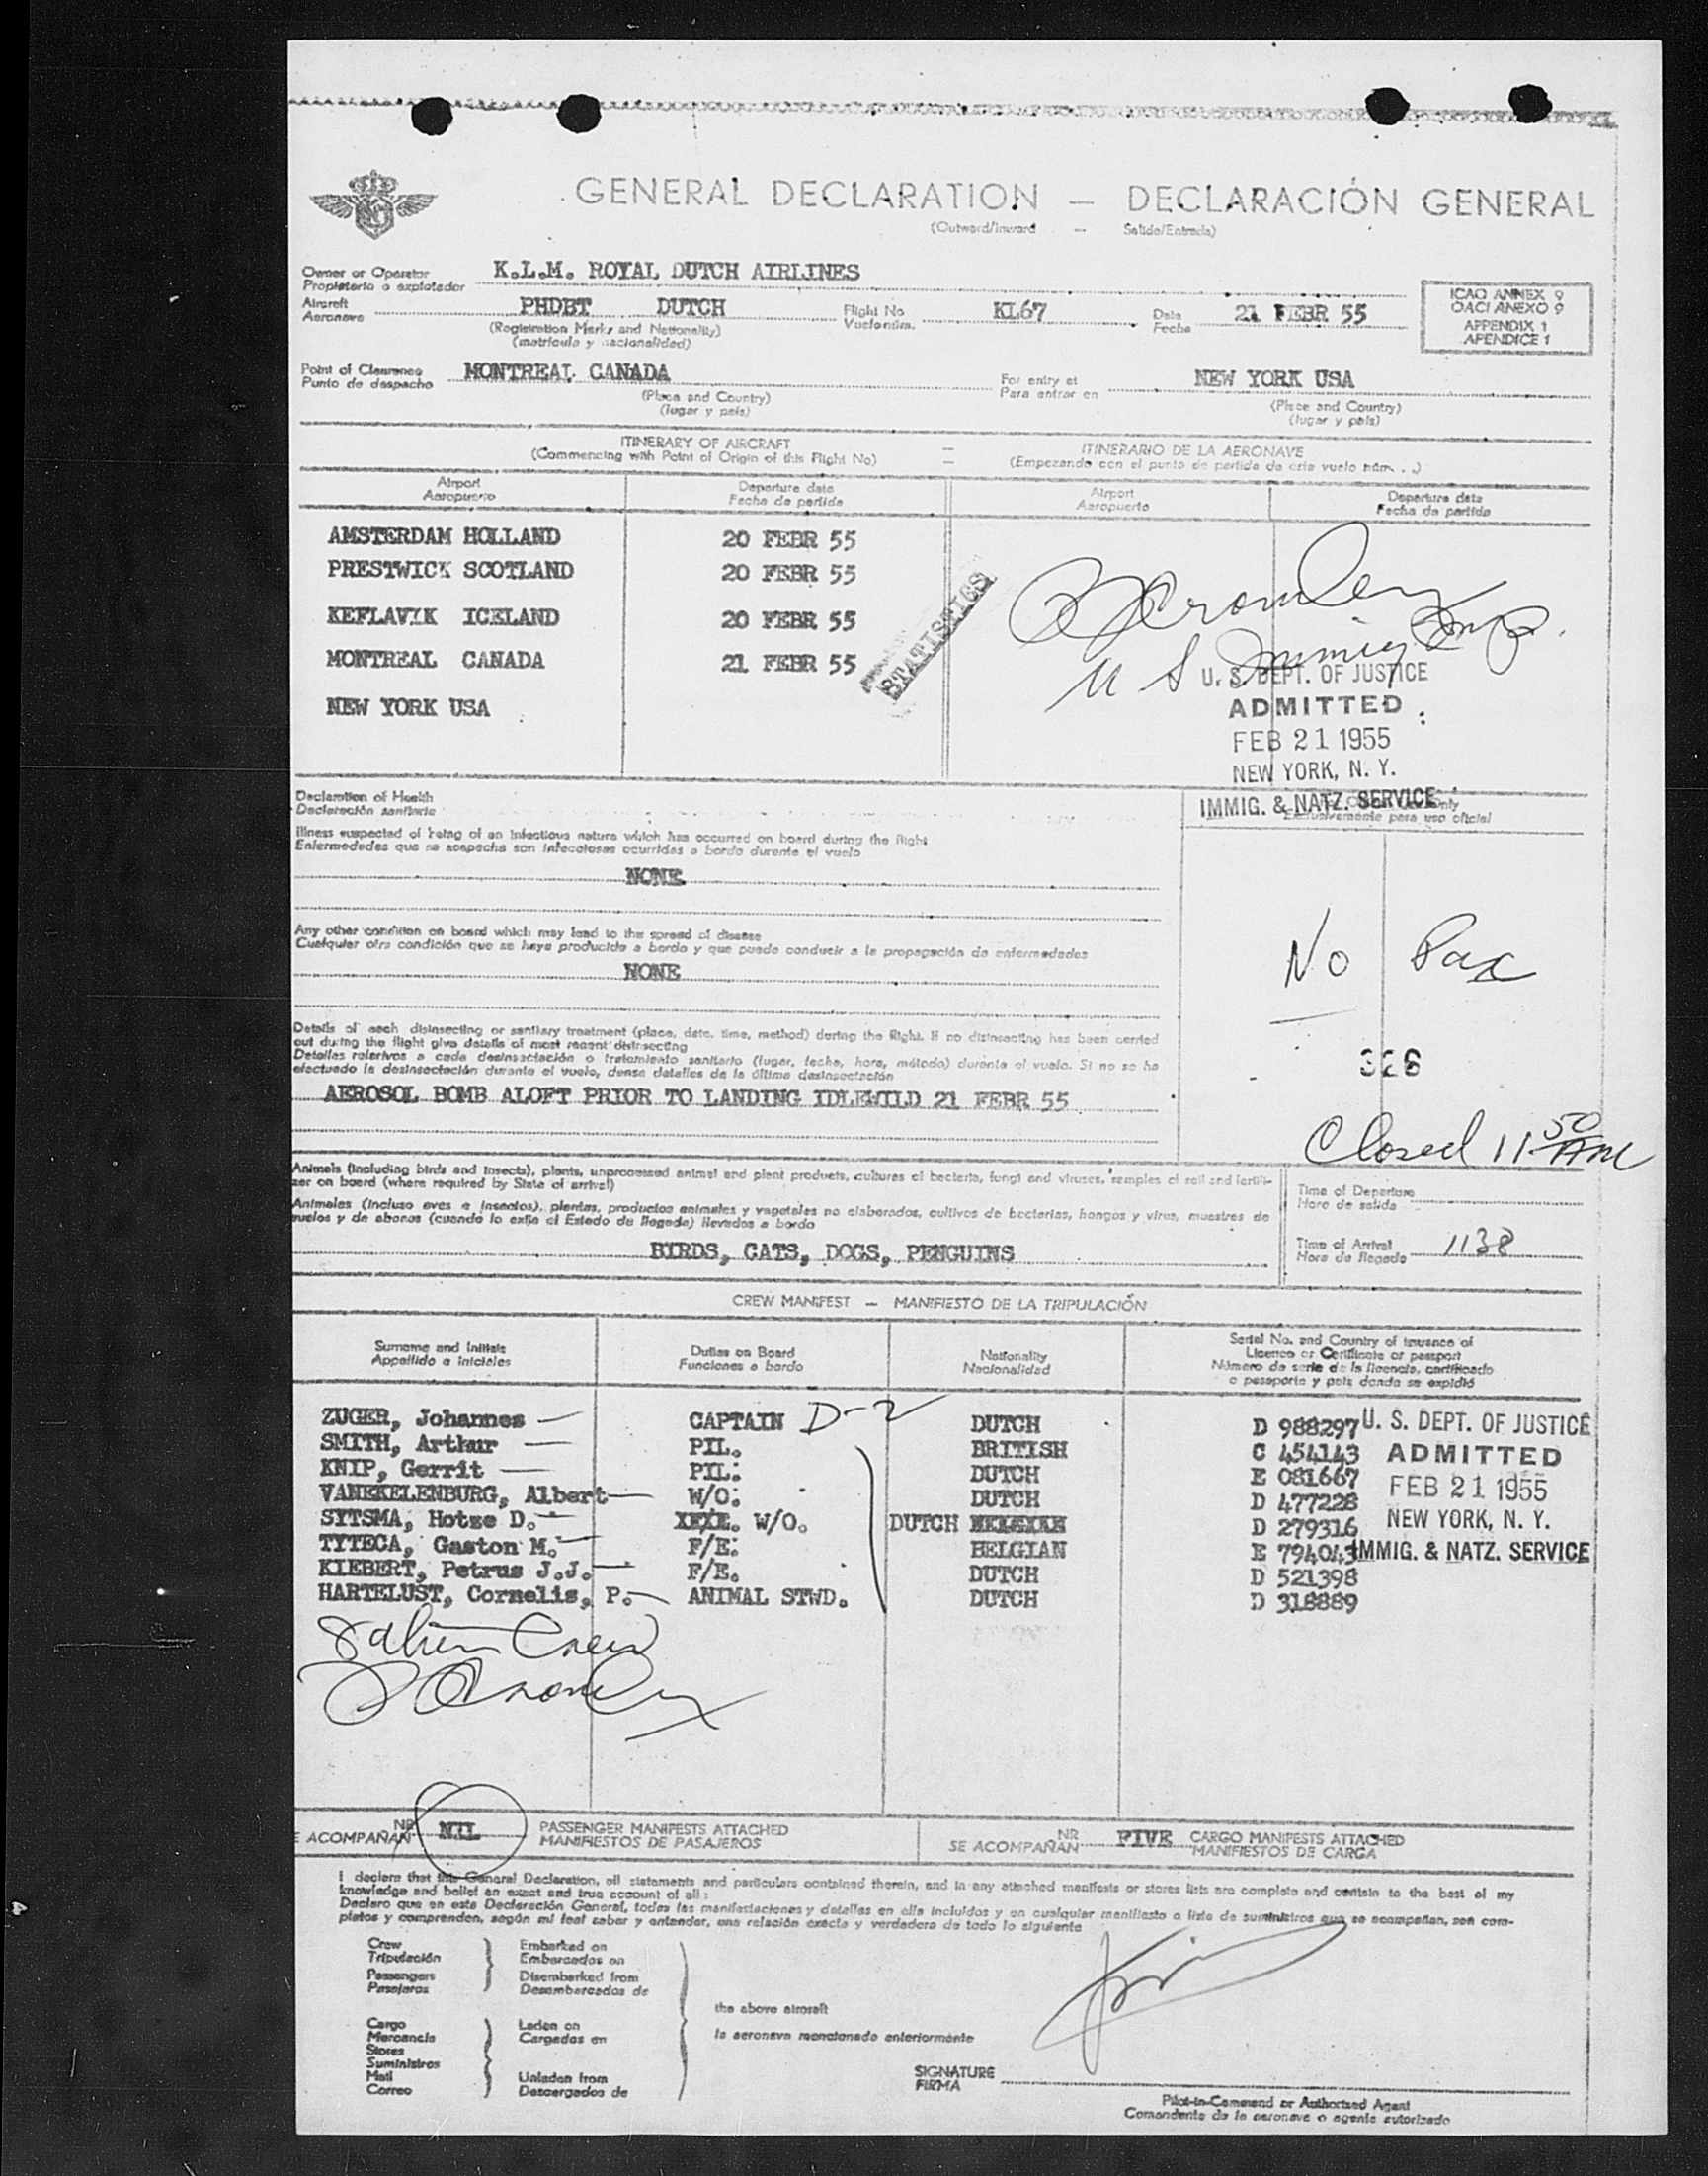 GENERAL DECLARATION — DECLARACIÓN GENERAL
(Outward/Inward — Salida/Entrada)
Owner or Operator K.L.M. ROYAL DUTCH AIRLINES
Propietario o explotador
Aircraft PHDBT DUTCH Flight No KL67 Date 21 FEBR 55
Aeronave Vuelo núm. Fecha
(Registration Marks and Nationality)
(matrícula y nacionalidad)
ICAO ANNEX 9
OACI ANEXO 9
APPENDIX 1
APENDICE 1
Point of Clearance MONTREAL CANADA For entry at NEW YORK USA
Punto de despacho Para entrar en
(Place and Country) (Place and Country)
(lugar y país) (lugar y país)
ITINERARY OF AIRCRAFT — ITINERARIO DE LA AERONAVE
(Commencing with Point of Origin of this Flight No) — (Empezando con el punto de partida de este vuelo núm. . .)
Airport Departure date Airport Departure date
Aeropuerto Fecha de partida Aeropuerto Fecha de partida
AMSTERDAM HOLLAND 20 FEBR 55
PRESTWICK SCOTLAND 20 FEBR 55
KEFLAVIK ICELAND 20 FEBR 55
MONTREAL CANADA 21 FEBR 55
NEW YORK USA
STATISTICS
Cromley
U S Immig Insp.
U. S. DEPT. OF JUSTICE
ADMITTED
FEB 21 1955
NEW YORK, N. Y.
IMMIG. & NATZ. SERVICE
Exclusivamente para uso oficial
Declaration of Health
Declaración sanitaria
Illness suspected of being of an infectious nature which has occurred on board during the flight
Enfermedades que se sospecha son infecciosas ocurridas a bordo durante el vuelo
NONE
Any other condition on board which may lead to the spread of disease
Cualquier otra condición que se haya producido a bordo y que pueda conducir a la propagación de enfermedades
NONE
No Pax
Details of each disinsecting or sanitary treatment (place, date, time, method) during the flight. If no disinsecting has been carried
out during the flight give details of most recent disinsecting
Detalles relativos a cada desinsectación o tratamiento sanitario (lugar, fecha, hora, método) durante el vuelo. Si no se ha
efectuado la desinsectación durante el vuelo, dense detalles de la última desinsectación
AEROSOL BOMB ALOFT PRIOR TO LANDING IDLEWILD 21 FEBR 55
326
Closed 11 50 AM
Animals (including birds and insects), plants, unprocessed animal and plant products, cultures of bacteria, fungi and viruses, samples of soil and fertili-
zer on board (where required by State of arrival)
Animales (incluso aves e insectos), plantas, productos animales y vegetales no elaborados, cultivos de bacterias, hongos y virus, muestras de
suelos y de abonos (cuando lo exija el Estado de llegada) llevados a bordo
BIRDS, CATS, DOGS, PENGUINS
Time of Departure
Hora de salida
Time of Arrival 1138
Hora de llegada
CREW MANIFEST — MANIFIESTO DE LA TRIPULACIÓN
Surname and Initials Duties on Board Nationality Serial No. and Country of issuance of
Apellido e iniciales Funciones a bordo Nacionalidad Licence or Certificate or passport
Número de serie de la licencia, certificado
o pasaporte y país donde se expidió
ZUGER, Johannes — CAPTAIN D-2 DUTCH D 988297
SMITH, Arthur — PIL. BRITISH C 454143
KNIP, Gerrit — PIL. DUTCH E 081667
VANEKELENBURG, Albert — W/O. DUTCH D 477228
SYTSMA, Hotze D. — W/O. DUTCH D 279316
TYTECA, Gaston M. — F/E. BELGIAN E 794043
KIEBERT, Petrus J.J. — F/E. DUTCH D 521398
HARTELUST, Cornelis, P. — ANIMAL STWD. DUTCH D 318889
U. S. DEPT. OF JUSTICE
ADMITTED
FEB 21 1955
NEW YORK, N. Y.
IMMIG. & NATZ. SERVICE
Crew
NR NIL PASSENGER MANIFESTS ATTACHED NR FIVE CARGO MANIFESTS ATTACHED
E ACOMPAÑAN MANIFIESTOS DE PASAJEROS SE ACOMPAÑAN MANIFIESTOS DE CARGA
I declare that this General Declaration, all statements and particulars contained therein, and in any attached manifests or stores lists are complete and contain to the best of my
knowledge and belief an exact and true account of all :
Declaro que en esta Declaración General, todas las manifestaciones y detalles en ella incluidos y en cualquier manifiesto o lista de suministros que se acompañan, son com-
pletos y comprenden, según mi leal saber y entender, una relación exacta y verdadera de todo lo siguiente
Crew Embarked on
Tripulación Embarcados en
Passengers Disembarked from
Pasajeros Desembarcados de
the above aircraft
Cargo Laden on
Mercancía Cargadas en
la aeronave mencionada anteriormente
Stores
Suministros
Mail Unladen from
Correo Descargados de
SIGNATURE
FIRMA
Pilot-in-Command or Authorised Agent
Comandante de la aeronave o agente autorizado